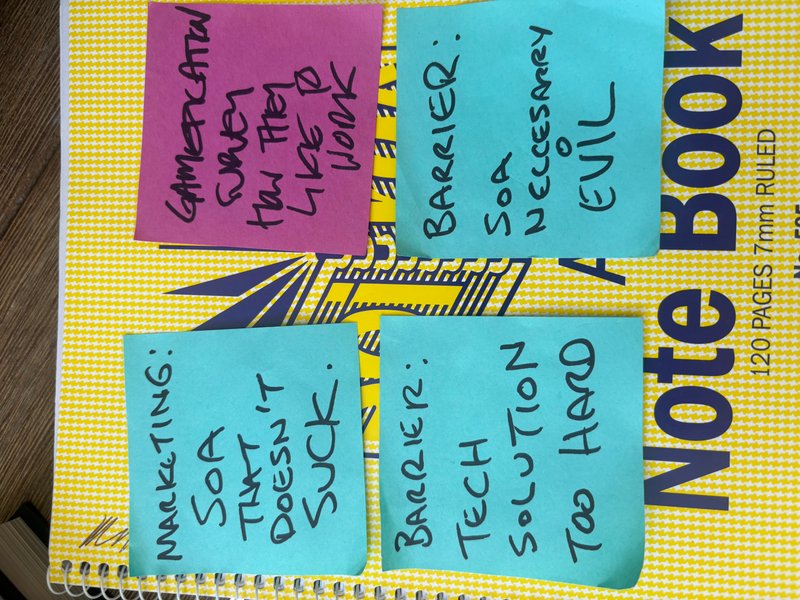 MARKETING:
SOA
THAT
DOESN'T
SUCK.
GAMEFICATION
SURVEY
HOW THEY
LIKE TO
WORK
BARRIER:
TECH
SOLUTION
TOO HARD
BARRIER:
SOA
NECCESARRY
EVIL
Note Book
120 PAGES 7mm RULED